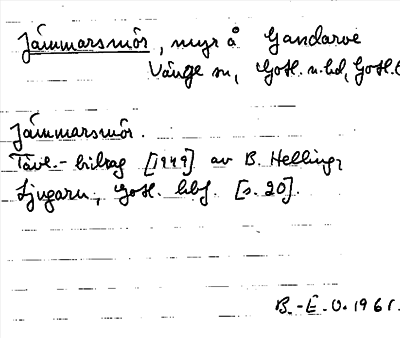 Jämmarsmór, myr å Gandarve
Vänge sn, Gotl. n. hd, Gotl.
Jämmarsmór.
Tävl.-bidrag [1949] av B. Hellinge,
Ljugarn, Gotl. hbf. [s. 20].
B.-E. O. 1961.